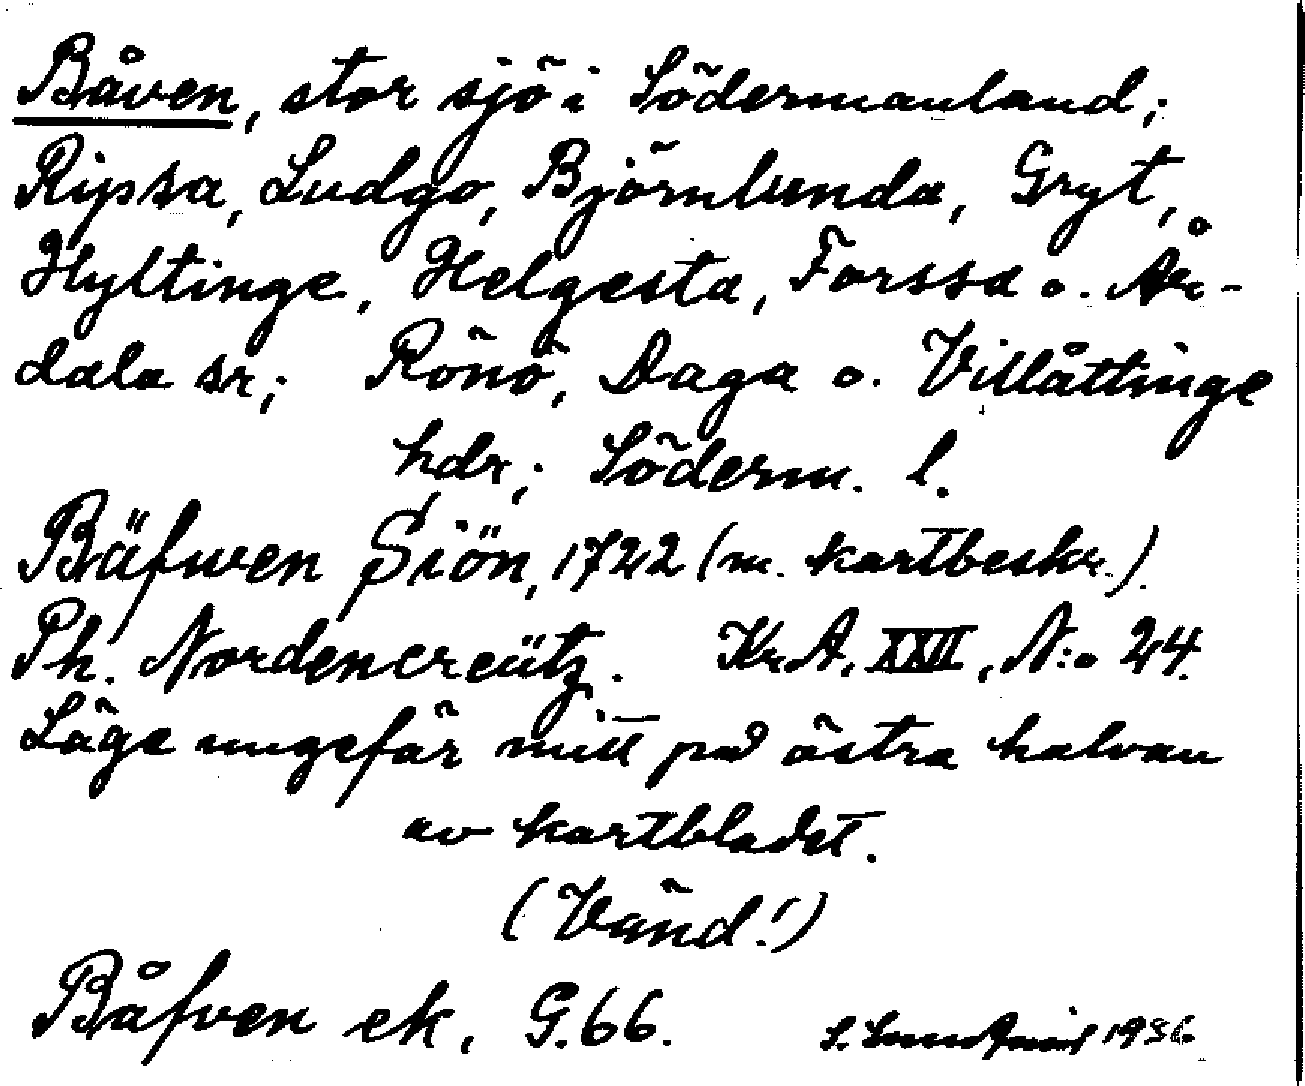 Båven, stor sjö i Södermanland;
Ripsa, Ludgo, Björnlunda, Gryt,
Hyltinge, Helgesta, Forssa o. År-
dala sr; Rönö, Daga o. Villåttinge
hdr; Söderm. l.
Bäfwen Siön, 1722 (m. kartbeskr.).
Ph. Nordencreütz. Kr.A. XXII, N:o 24.
Läge ungefär mitt på östra halvan
av kartbladet.
(Vänd!)
Båfven ek. G.66. S. Lundqvist 1936